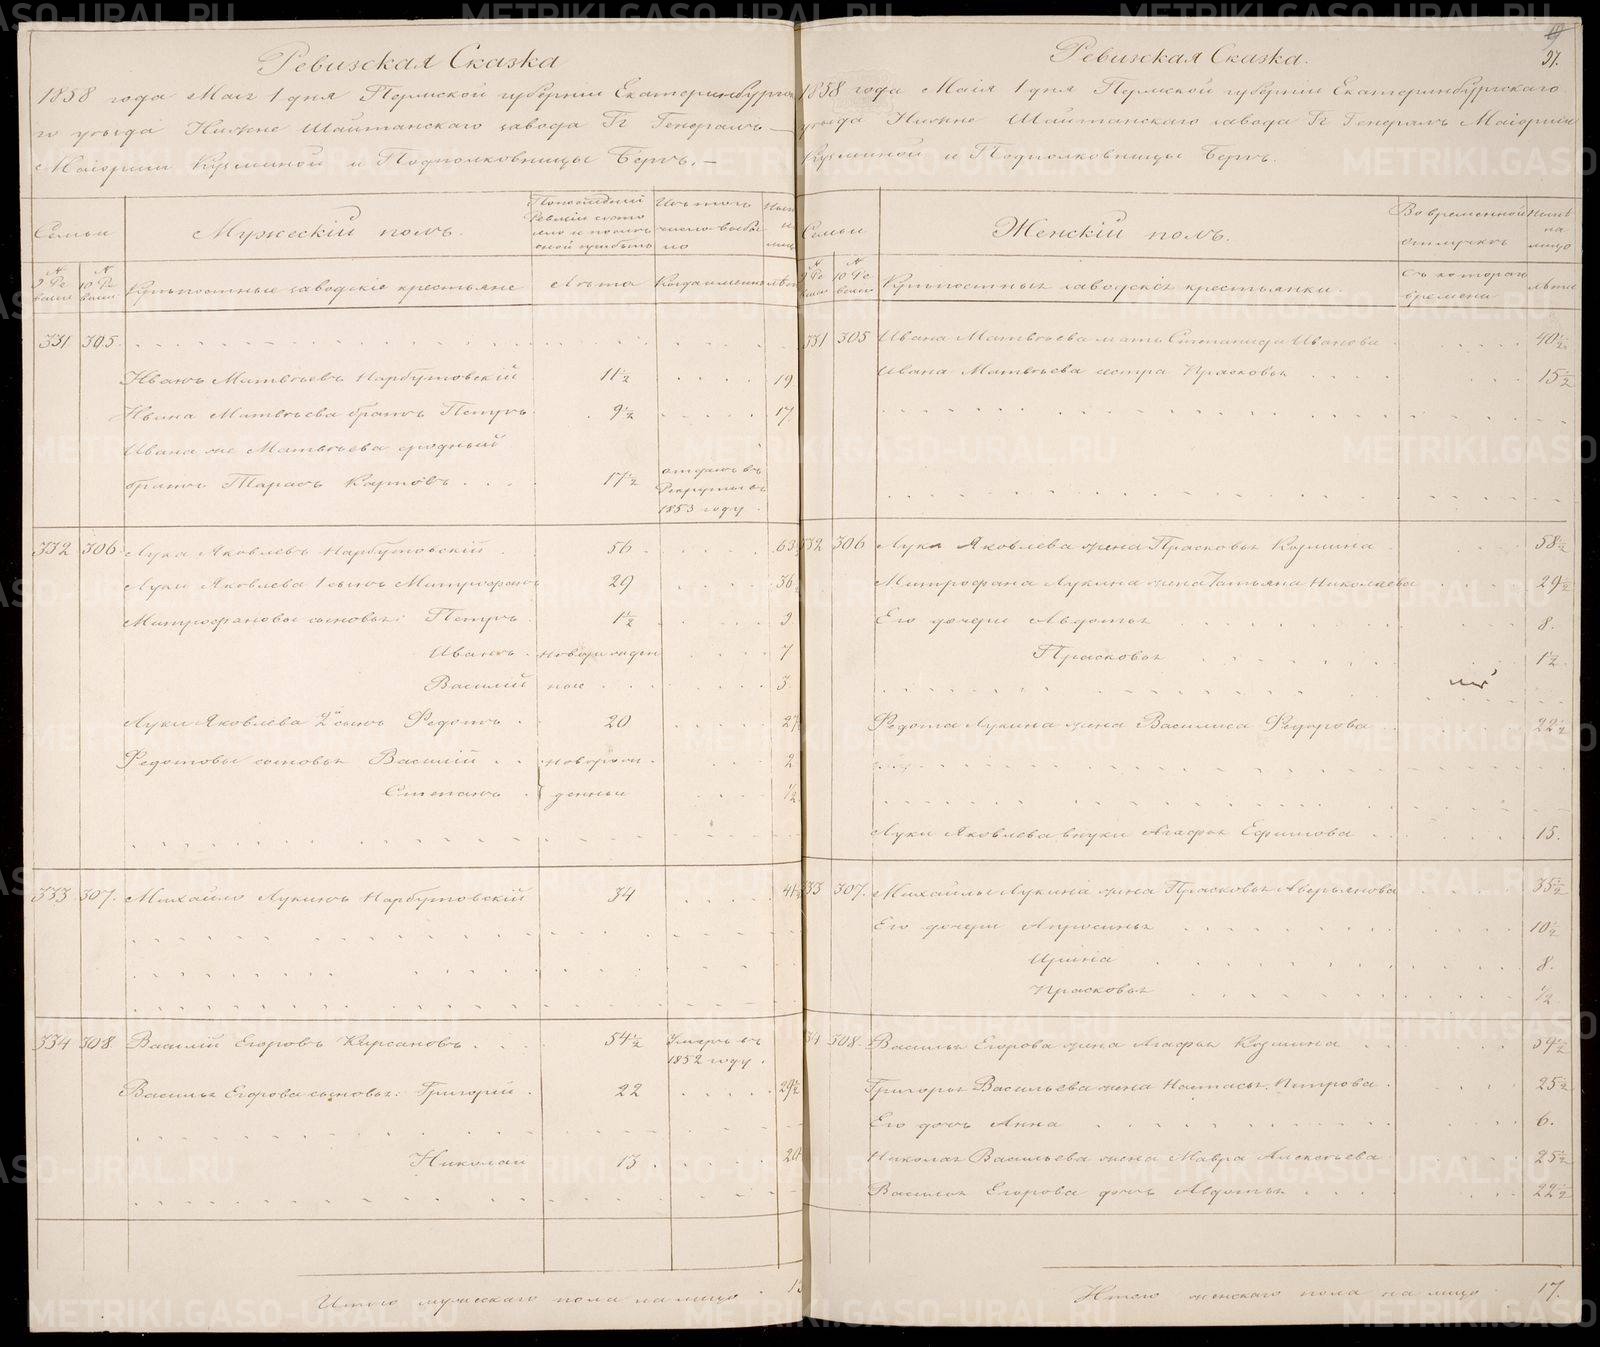 Ревизская Сказка
1858 года Маия 1 дня Пермской губерніи Екатеринбургска
го уѣзда Нижне Шайтанскаго завода Гг Генералъ —
Маіорши Кузьминой и Подполковницы Бергъ. —
Семьи
Мужескій полъ.
По последней Ревизіи состояло и после оной прибыло
Изъ того числа выбыло
Ныне на лицо
№ 9 Ревизіи
№ 10 Ревизіи
Крѣпостные заводскіе крестьяне
Лѣта
Когда именно
Лѣта
331 305
Иванъ Матвѣевъ Нарбутовскій 11½ 19
Ивана Матвѣева братъ Петръ 9½ 17
Ивана же Матвѣева сродный
братъ Тарасъ Карповъ 17½ отданъ въ Рекруты въ 1853 году.
332 306 Лука Яковлевъ Нарбутовскій 56 63
Луки Яковлева 1 сынъ Митрофанъ 29 36
Митрофановы сыновья: Петръ 1½ 9
Иванъ новорожден 7
Василій ные 3
Луки Яковлева 2й сынъ Федотъ 20 27
Федотовы сыновья Василій новорож 2
Степанъ денные ½
333 307. Михайло Лукинъ Нарбутовскій 34 41
334 308 Василій Егоровъ Кирсановъ 54½ Умеръ въ 1852 году.
Василья Егорова сыновья: Григорій 22 29½
Николай 13 20
Итого мужескаго пола на лицо
Ревизская Сказка.
37.
1858 года Маия 1 дня Пермской губерніи Екатеринбургскаго
уѣзда Нижне Шайтанскаго завода Гг Генералъ Маіорши
Кузьминой и Подполковницы Бергъ.
Семьи
Женскій полъ.
Во временной отлучкѣ
Нынѣ на лицо
№ 9 Ревизіи
№ 10 Ревизіи
Крѣпостныя заводскія крестьянки.
Съ котораго времени
Лѣта
331 305 Ивана Матвѣева мать Степанида Иванова 40½
Ивана Матвѣева сестра Прасковья 15½
332 306 Луки Яковлева жена Прасковья Козмина 58½
Митрофана Лукина жена Татьяна Николаева 29½
Его дочери Авдотья 8.
Прасковья 1½
Федота Лукина жена Василиса Федорова 22½
Луки Яковлева внука Агафья Ефимова 15.
333 307. Михайлы Лукина жена Прасковья Аверьянова 35½
Его дочери Апросинья 10½
Ирина 8.
Прасковья ½
34 308. Василья Егорова жена Агафья Козмина 54½
Григорья Васильева жена Настасья Петрова 25½
Его дочь Анна 6.
Николая Васильева жена Мавра Алексѣева 25½
Василья Егорова дочь Авдотья 22½
Итого женскаго пола на лицо 17.
METRIKI.GASO-URAL.RU